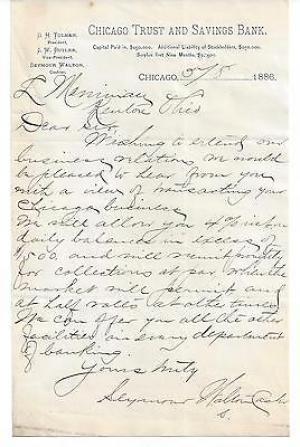 D. H. TOLMAN,
President.
J. W. BUTLER,
Vice-President.
SEYMOUR WALTON,
Cashier.
CHICAGO TRUST AND SAVINGS BANK.
Capital Paid in, $250,000. Additional Liability of Stockholders, $250,000.
CHICAGO, 3/8 1886.
L Merriman
Kenton Ohio
Dear Sir
Wishing to extend our
business relations we would
be pleased to hear from you
with a view of transacting your
Chicago business
We will allow you
daily balances in excess of
$500, and will remit
for collections at par when the
market will permit and
at half rates at other times
We can offer you all the other
facilities in every department
of banking.
Yours truly
Seymour Walton Cash